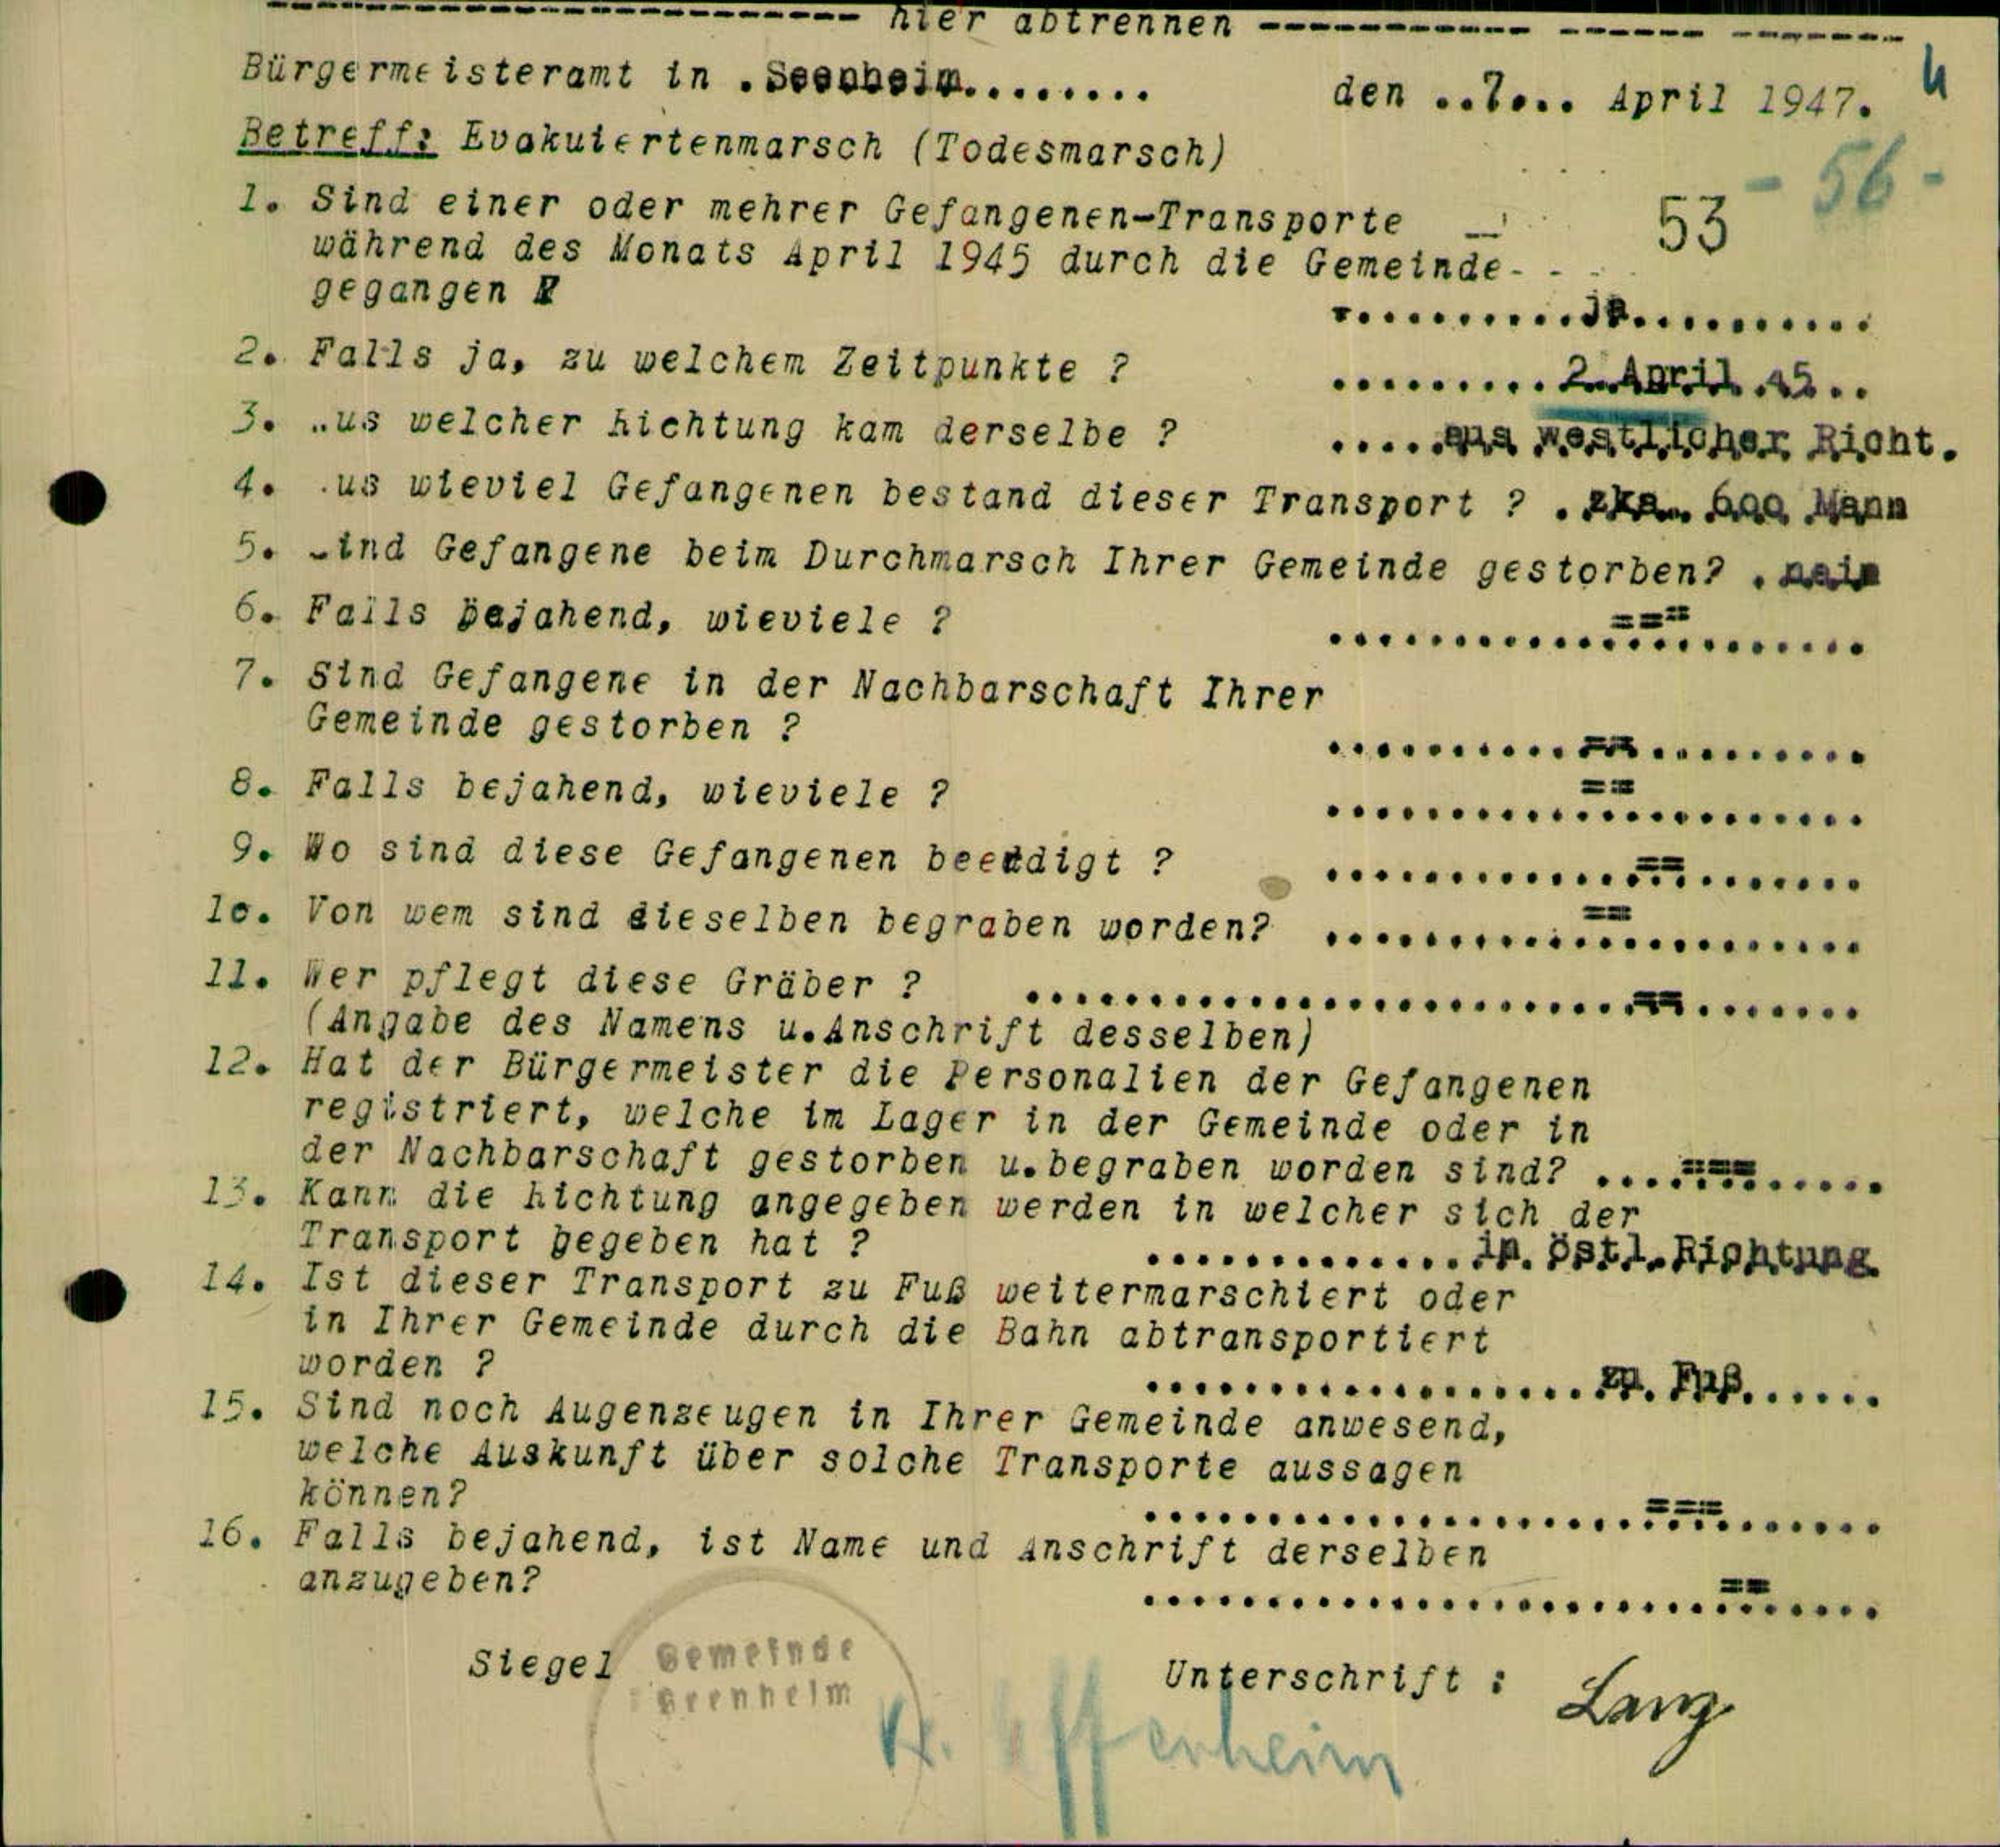 hier abtrennen
Bürgermeisteramt in .Seenheim........ den ..7... April 1947.
Betreff: Evakuiertenmarsch (Todesmarsch)
- 56 -
53
1. Sind einer oder mehrer Gefangenen-Transporte
während des Monats April 1945 durch die Gemeinde
gegangen ? ...........ja..........
2. Falls ja, zu welchem Zeitpunkte ? .........2. April 45..
3. .us welcher Richtung kam derselbe ? .....aus westlicher Richt.
4. .us wieviel Gefangenen bestand dieser Transport ? .zka. 600 Mann
5. .ind Gefangene beim Durchmarsch Ihrer Gemeinde gestorben? .nein
6. Falls bejahend, wieviele ? ...........===...........
7. Sind Gefangene in der Nachbarschaft Ihrer
Gemeinde gestorben ? ..........==..........
8. Falls bejahend, wieviele ? ..........==..........
9. Wo sind diese Gefangenen beerdigt ? ............==........
10. Von wem sind dieselben begraben worden? ..........==..........
11. Wer pflegt diese Gräber ? .........................==.......
(Angabe des Namens u.Anschrift desselben)
12. Hat der Bürgermeister die Personalien der Gefangenen
registriert, welche im Lager in der Gemeinde oder in
der Nachbarschaft gestorben u.begraben worden sind? ....===.....
13. Kann die Richtung angegeben werden in welcher sich der
Transport begeben hat ? .............in östl.Richtung
14. Ist dieser Transport zu Fuß weitermarschiert oder
in Ihrer Gemeinde durch die Bahn abtransportiert
worden ? ..................zu Fuß......
15. Sind noch Augenzeugen in Ihrer Gemeinde anwesend,
welche Auskunft über solche Transporte aussagen
können? ....................===......
16. Falls bejahend, ist Name und Anschrift derselben
anzugeben? .......................==.....
Siegel Gemeinde Unterschrift : Lang
Seenheim
K. Uffenheim